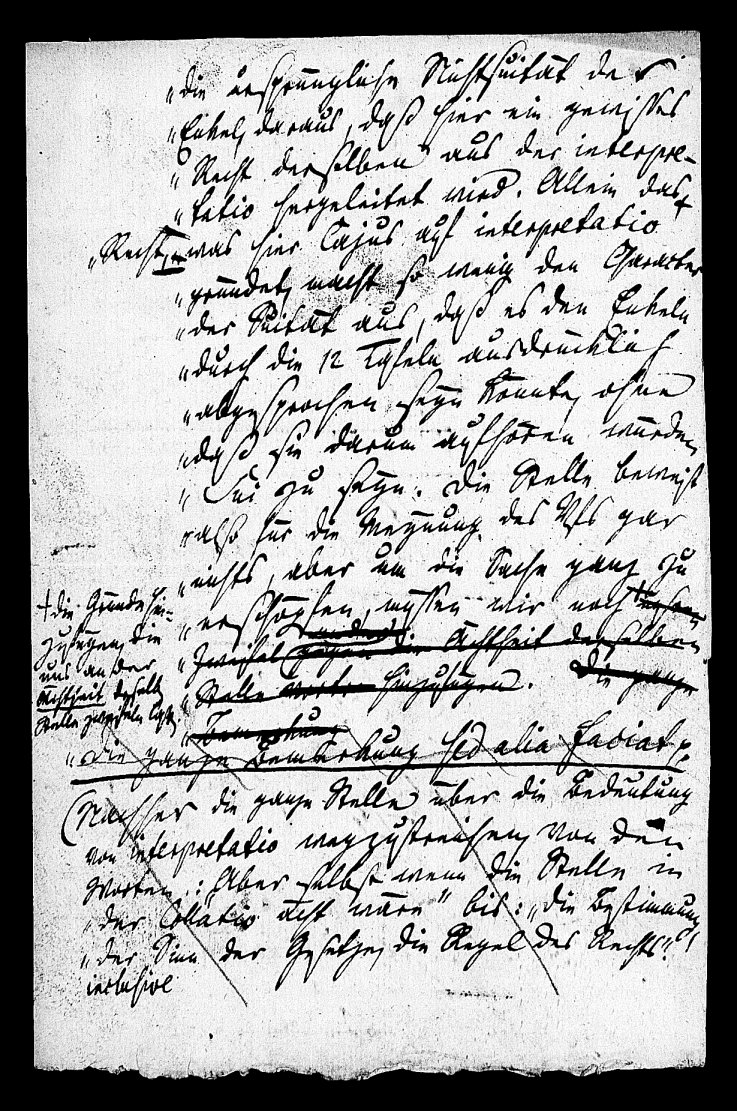 „die ursprüngliche Nichtsuität der
„Enkel, daraus, daß hier ein gewisses
„Recht derselben aus der interpre-
„tatio hergeleitet wird. Allein das
„Recht, was hier Cajus auf interpretatio
„gründet, macht so wenig den Character
„der Suität aus, daß es den Enkeln
„durch die 12 Tafeln ausdrücklich
„abgesprochen seyn könnte, ohne
„daß sie darum aufhören würden,
„Sui zu seyn. Die Stelle beweist
„also für die Meynung des Vfs gar
„nichts, aber um die Sache ganz zu
„erschöpfen, müssen wir noch
„Zweifel gegen die Ächtheit derselben
„Stelle hinzufügen. Die ganze
„Bemerkung
+ die Gründe hin-
zufügen, die
uns an der
Ächtheit derselb
Stelle zweifeln läßt
„die ganze Bemerkung sed alia faciat p.
(Nachher die ganze Stelle über die Bedeutung
von interpretatio wegzustreichen, von den
Worten: „Aber selbst wenn die Stelle in
„der Collatio ächt wäre" bis: „die Bestimmung
„der Sinn der Gesetze, die Regel des Rechts."
inclusive